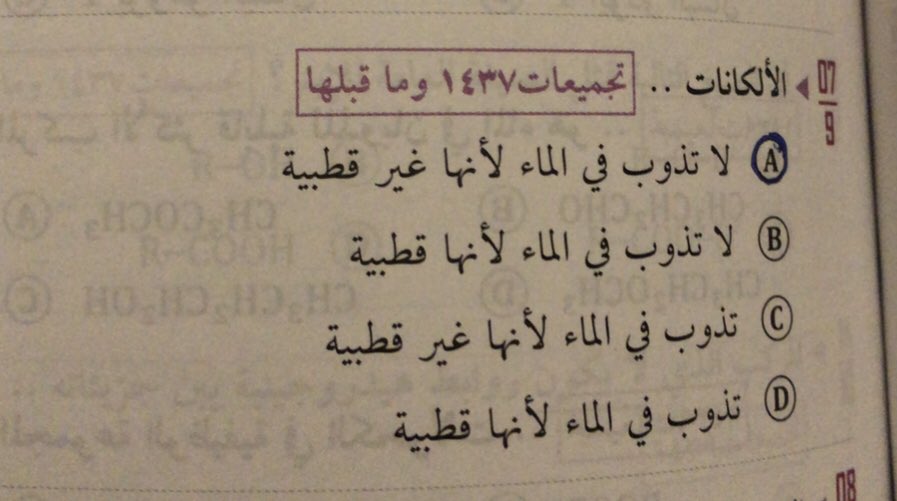 07
9
◄ الألكانات .. تجميعات ١٤٣٧ وما قبلها
Ⓐ لا تذوب في الماء لأنها غير قطبية
Ⓑ لا تذوب في الماء لأنها قطبية
Ⓒ تذوب في الماء لأنها غير قطبية
Ⓓ تذوب في الماء لأنها قطبية
08